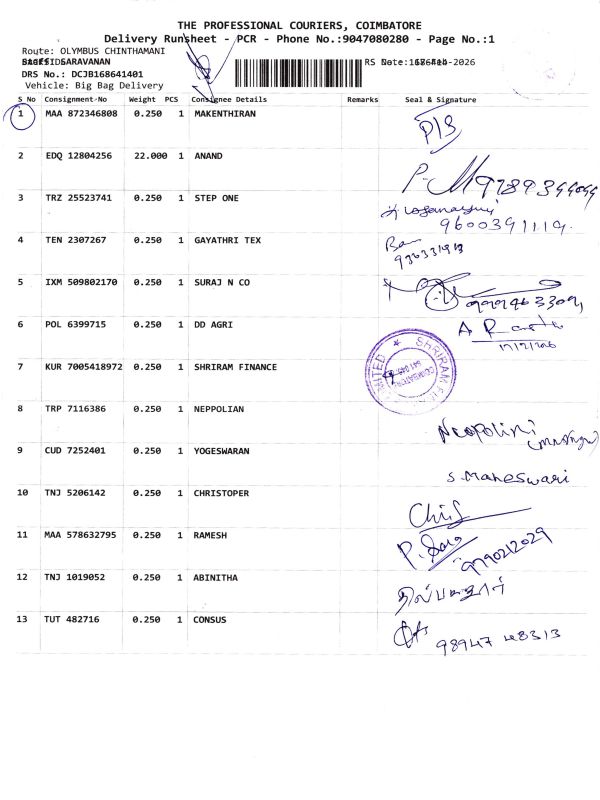 THE PROFESSIONAL COURIERS, COIMBATORE
Delivery Runsheet - PCR - Phone No.:9047080280 - Page No.:1
Route: OLYMBUS CHINTHAMANI
SARAVANAN
DRS No.: DCJB168641401
Vehicle: Big Bag Delivery
S No Consignment-No Weight PCS Consignee Details Remarks Seal & Signature
1 MAA 872346808 0.250 1 MAKENTHIRAN
2 EDQ 12804256 22.000 1 ANAND
3 TRZ 25523741 0.250 1 STEP ONE
9600391119
4 TEN 2307267 0.250 1 GAYATHRI TEX
5 IXM 509802170 0.250 1 SURAJ N CO
6 POL 6399715 0.250 1 DD AGRI
7 KUR 7005418972 0.250 1 SHRIRAM FINANCE
SHRIRAM
COIMBATORE
8 TRP 7116386 0.250 1 NEPPOLIAN
9 CUD 7252401 0.250 1 YOGESWARAN
S. Maheswari
10 TNJ 5206142 0.250 1 CHRISTOPER
11 MAA 578632795 0.250 1 RAMESH
12 TNJ 1019052 0.250 1 ABINITHA
13 TUT 482716 0.250 1 CONSUS
98947 48313